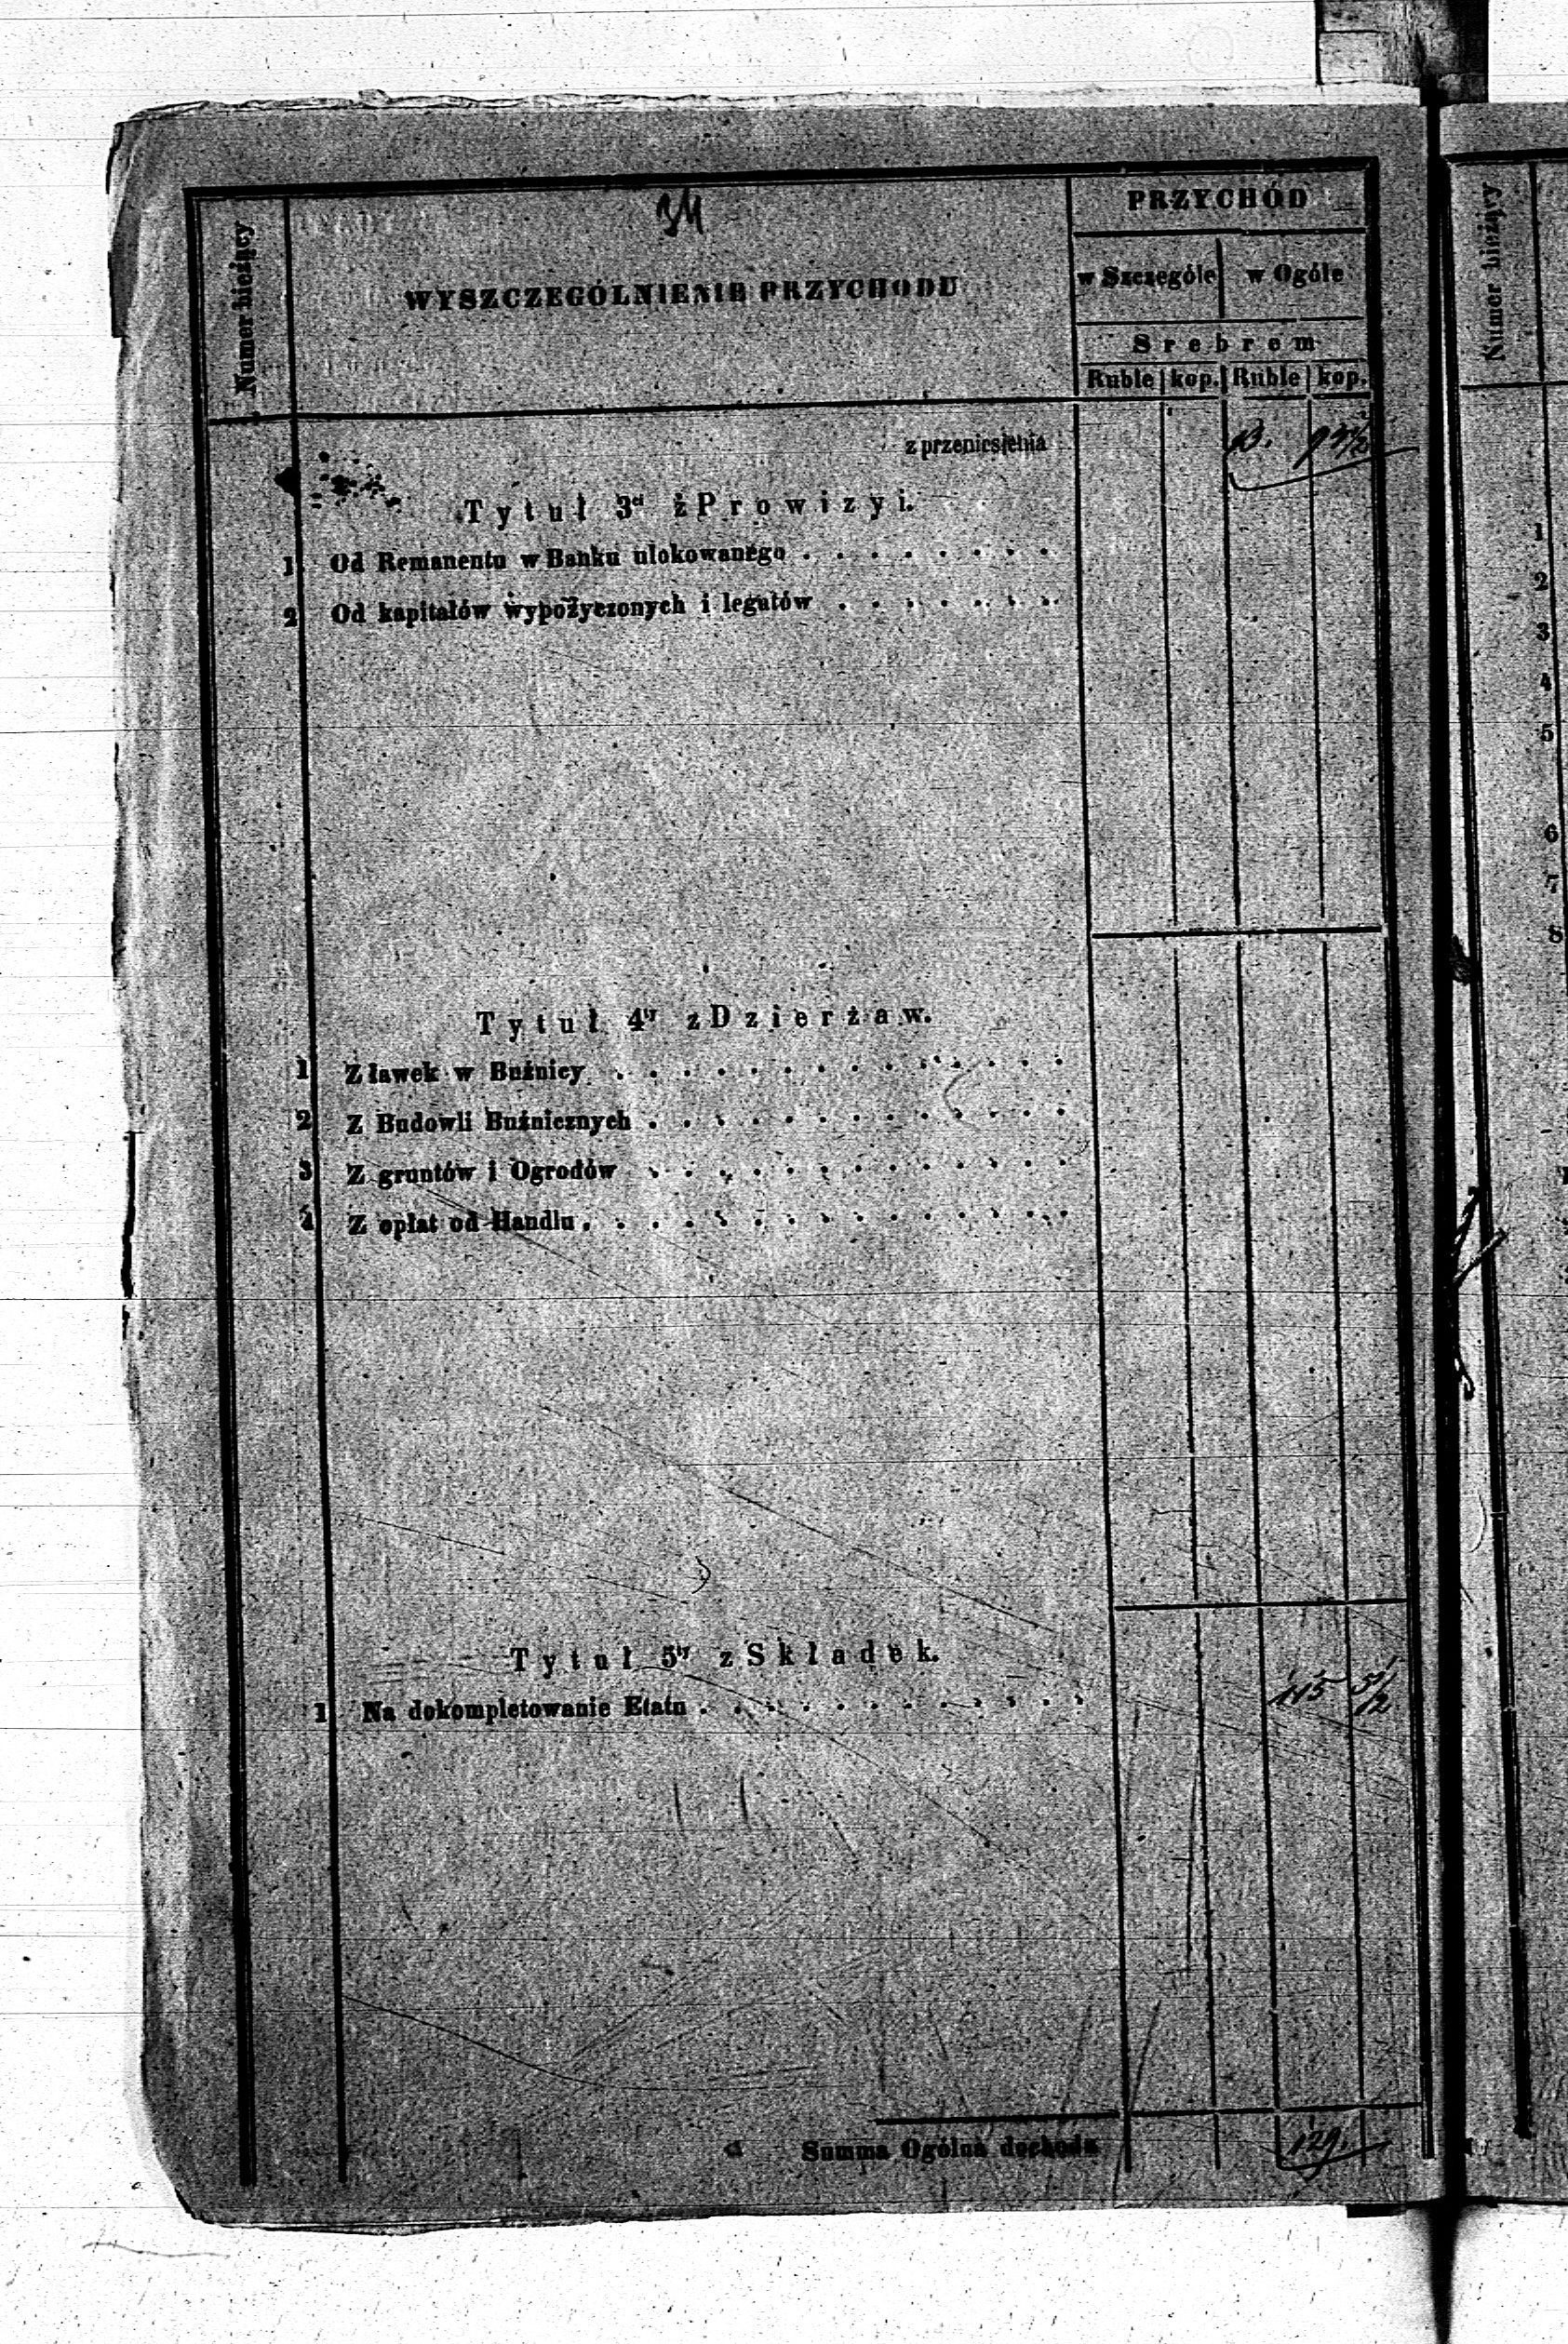 34
Numer bieżący
WYSZCZEGÓLNIENIE PRZYCHODU
PRZYCHÓD
w Szczególe
w Ogóle
Srebrem
Ruble kop. Ruble kop.
z przeniesienia
Tytuł 3ci z Prowizyi.
1 Od Remanentu w Banku ulokowanego
2 Od kapitałów wypożyczonych i legatów
Tytuł 4ty z Dzierżaw.
1 Z ławek w Buźnicy
2 Z Budowli Buźnicznych
3 Z gruntów i Ogrodów
4 Z opłat od Handlu
Tytuł 5ty z Składek.
1 Na dokompletowanie Etatu 115
Summa Ogólna dochodu 129.
Numer bieżący
1
2
3
4
5
6
7
8